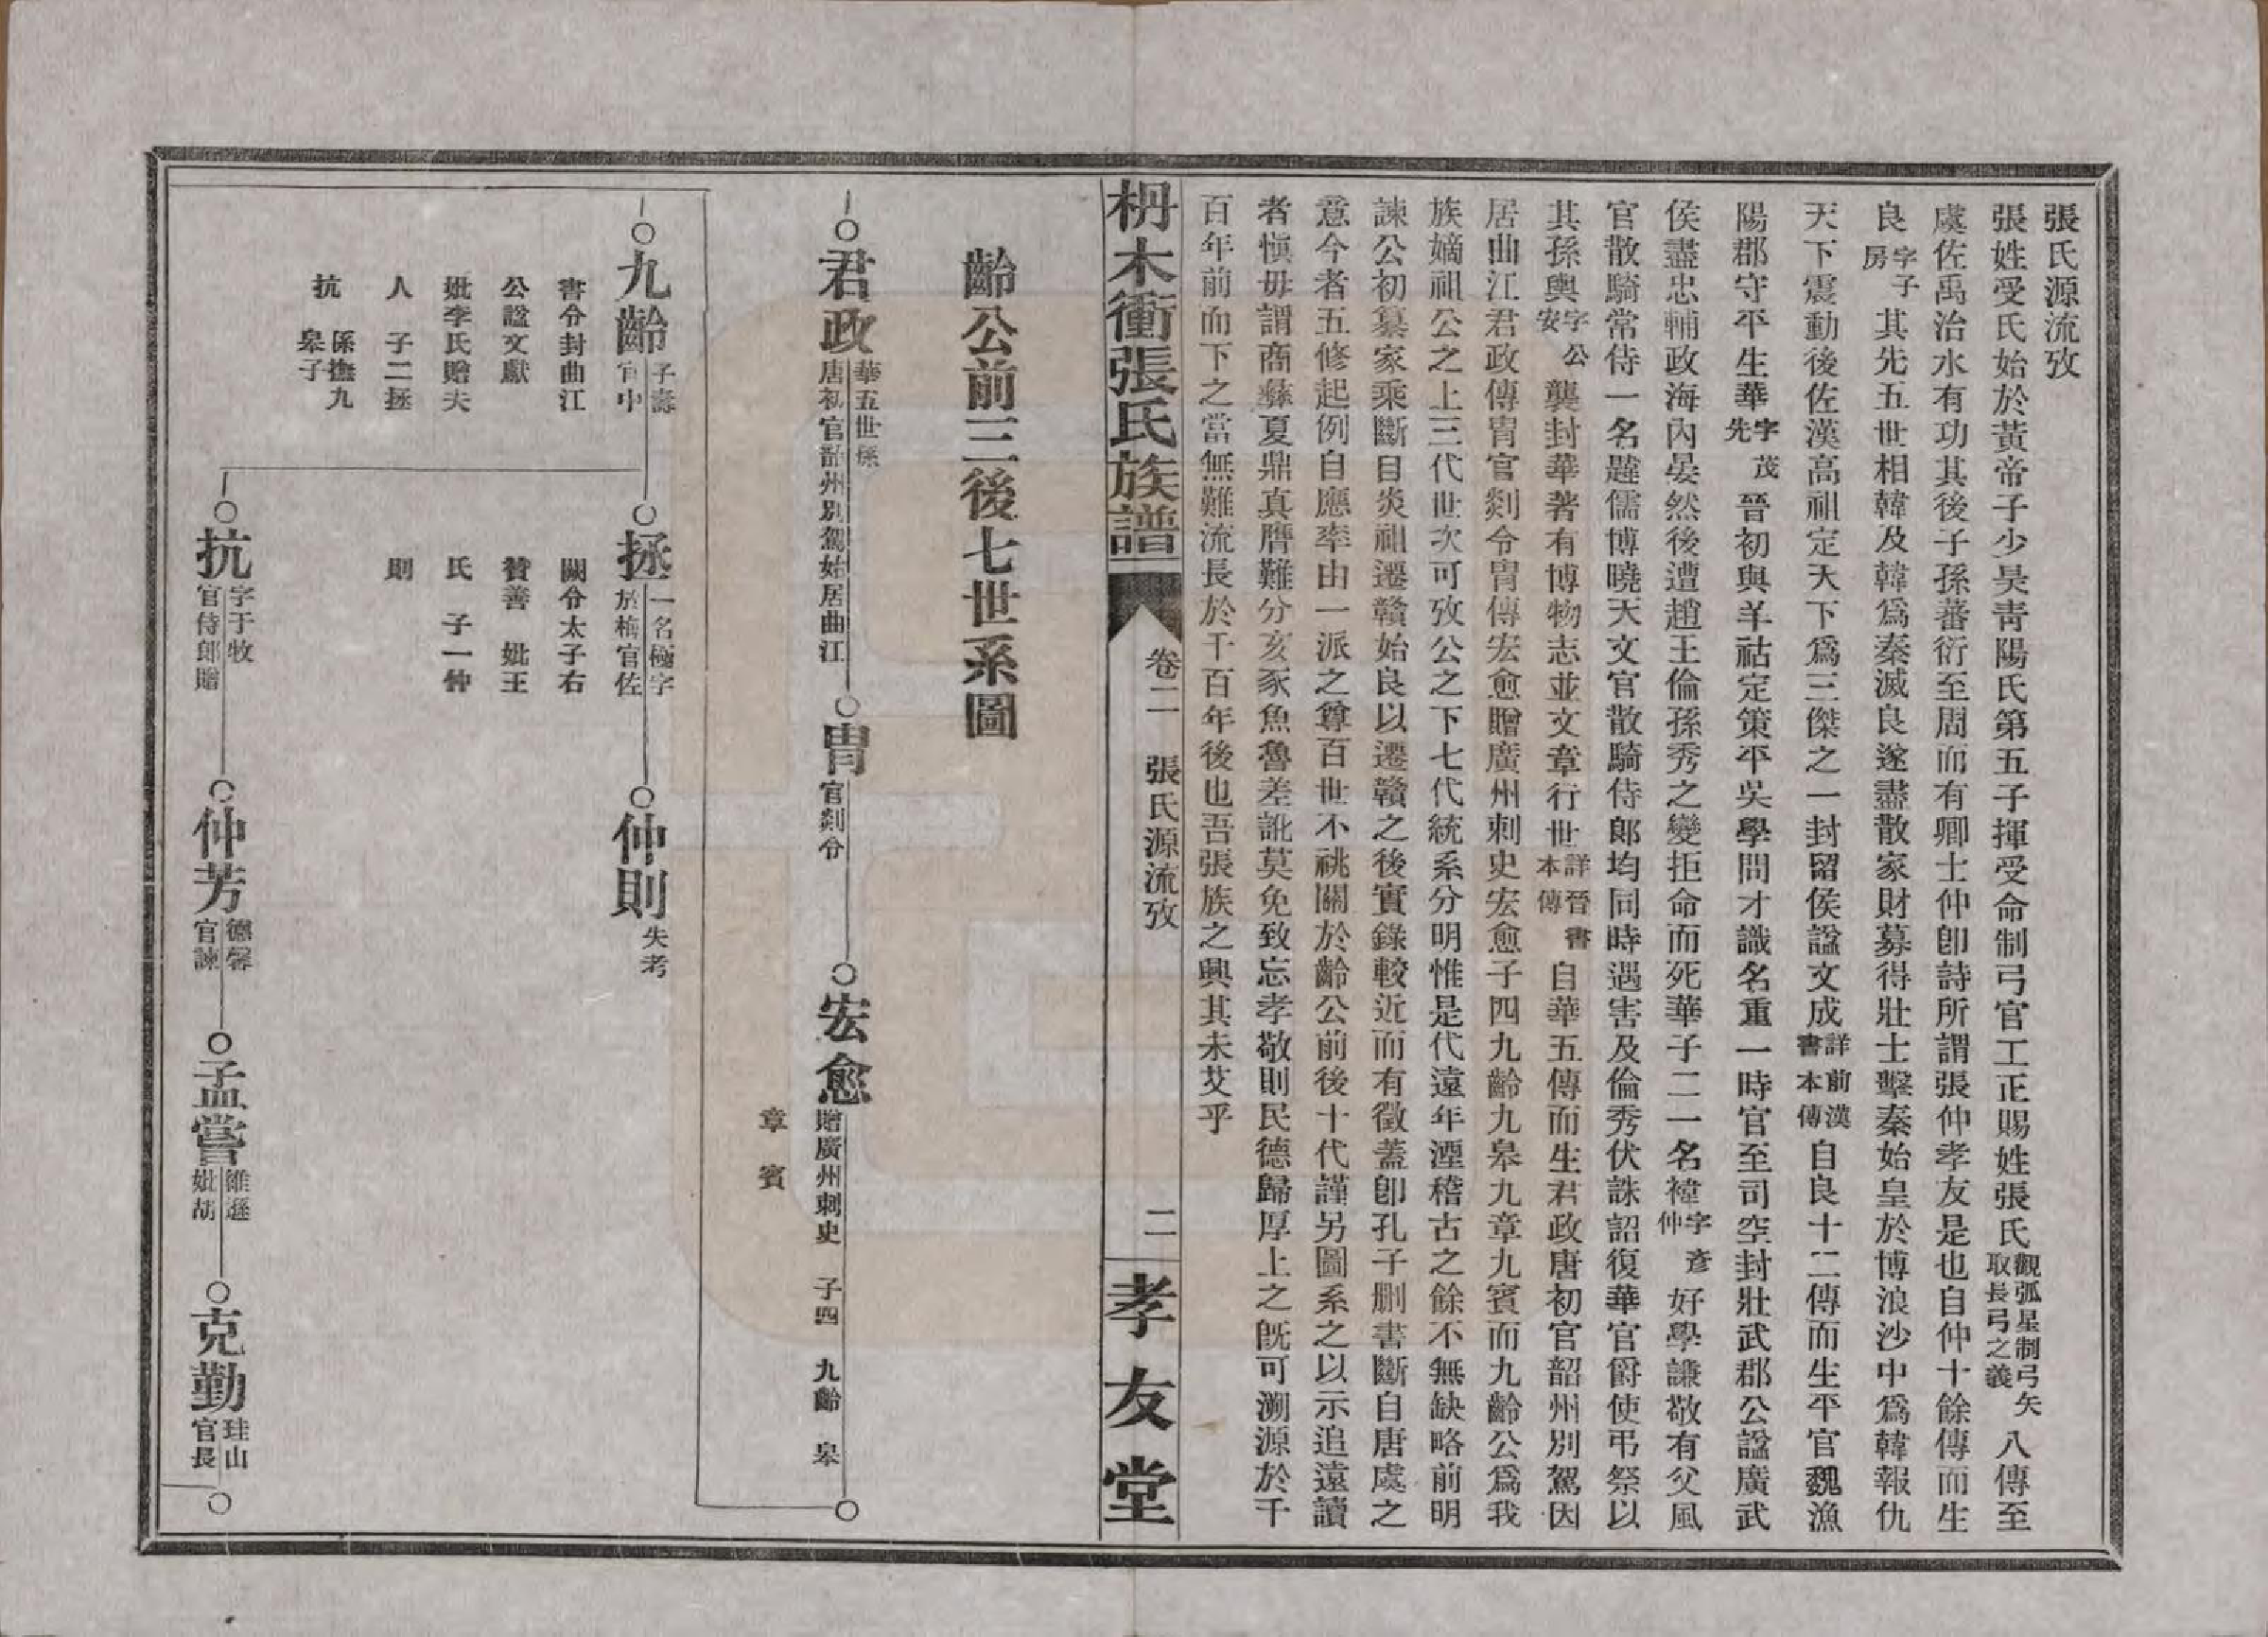 張氏源流攷
張姓受氏始於黃帝子少昊靑陽氏第五子揮受命制弓官工正賜姓張氏觀弧星制弓矢取長弓之義八傳至
虞佐禹治水有功其後子孫蕃衍至周而有卿士仲卽詩所謂張仲孝友是也自仲十餘傳而生
良字子房其先五世相韓及韓爲秦滅良遂盡散家財募得壯士擊秦始皇於博浪沙中爲韓報仇
天下震動後佐漢高祖定天下爲三傑之一封留侯諡文成詳前漢書本傳自良十二傳而生平官魏漁
陽郡守平生華字茂先晉初與羊祜定策平吳學問才識名重一時官至司空封壯武郡公諡廣武
侯盡忠輔政海內晏然後遭趙王倫孫秀之變拒命而死華子二一名褘字彥仲好學謙敬有父風
官散騎常侍一名韙儒博曉天文官散騎侍郎均同時遇害及倫秀伏誅詔復華官爵使弔祭以
其孫輿字公安襲封華著有博物志並文章行世詳晉書本傳自華五傳而生君政唐初官韶州別駕因
居曲江君政傳冑官剡令冑傳宏愈贈廣州刺史宏愈子四九齡九皋九章九賓而九齡公爲我
族嫡祖公之上三代世次可攷公之下七代統系分明惟是代遠年湮稽古之餘不無缺略前明
諫公初纂家乘斷自炎祖遷贛始良以遷贛之後實錄較近而有徵蓋卽孔子删書斷自唐虞之
意今者五修起例自應率由一派之尊百世不祧關於齡公前後十代謹另圖系之以示追遠讀
者愼毋謂商彝夏鼎真贋難分亥豕魚魯差訛莫免致忘孝敬則民德歸厚上之旣可溯源於千
百年前而下之當無難流長於千百年後也吾張族之興其未艾乎
枬木衝張氏族譜 卷二 張氏源流攷 二 孝友堂
齡公前三後七世系圖
君政 華五世孫唐初官韶州別駕始居曲江
冑 官剡令
宏愈 贈廣州刺史 子四 九齡 皋
章 賓
九齡 子壽官中
書令封曲江
公諡文獻
妣李氏贈夫
人 子二拯
抗 係撫九皋子
拯 一名極字於梅官佐
闕令太子右
贊善 妣王
氏 子一仲
則
仲則 失考
抗 字于牧官侍郎贈
仲芳 德馨官諫
孟嘗 雒遜妣胡
克勤 珪山官長